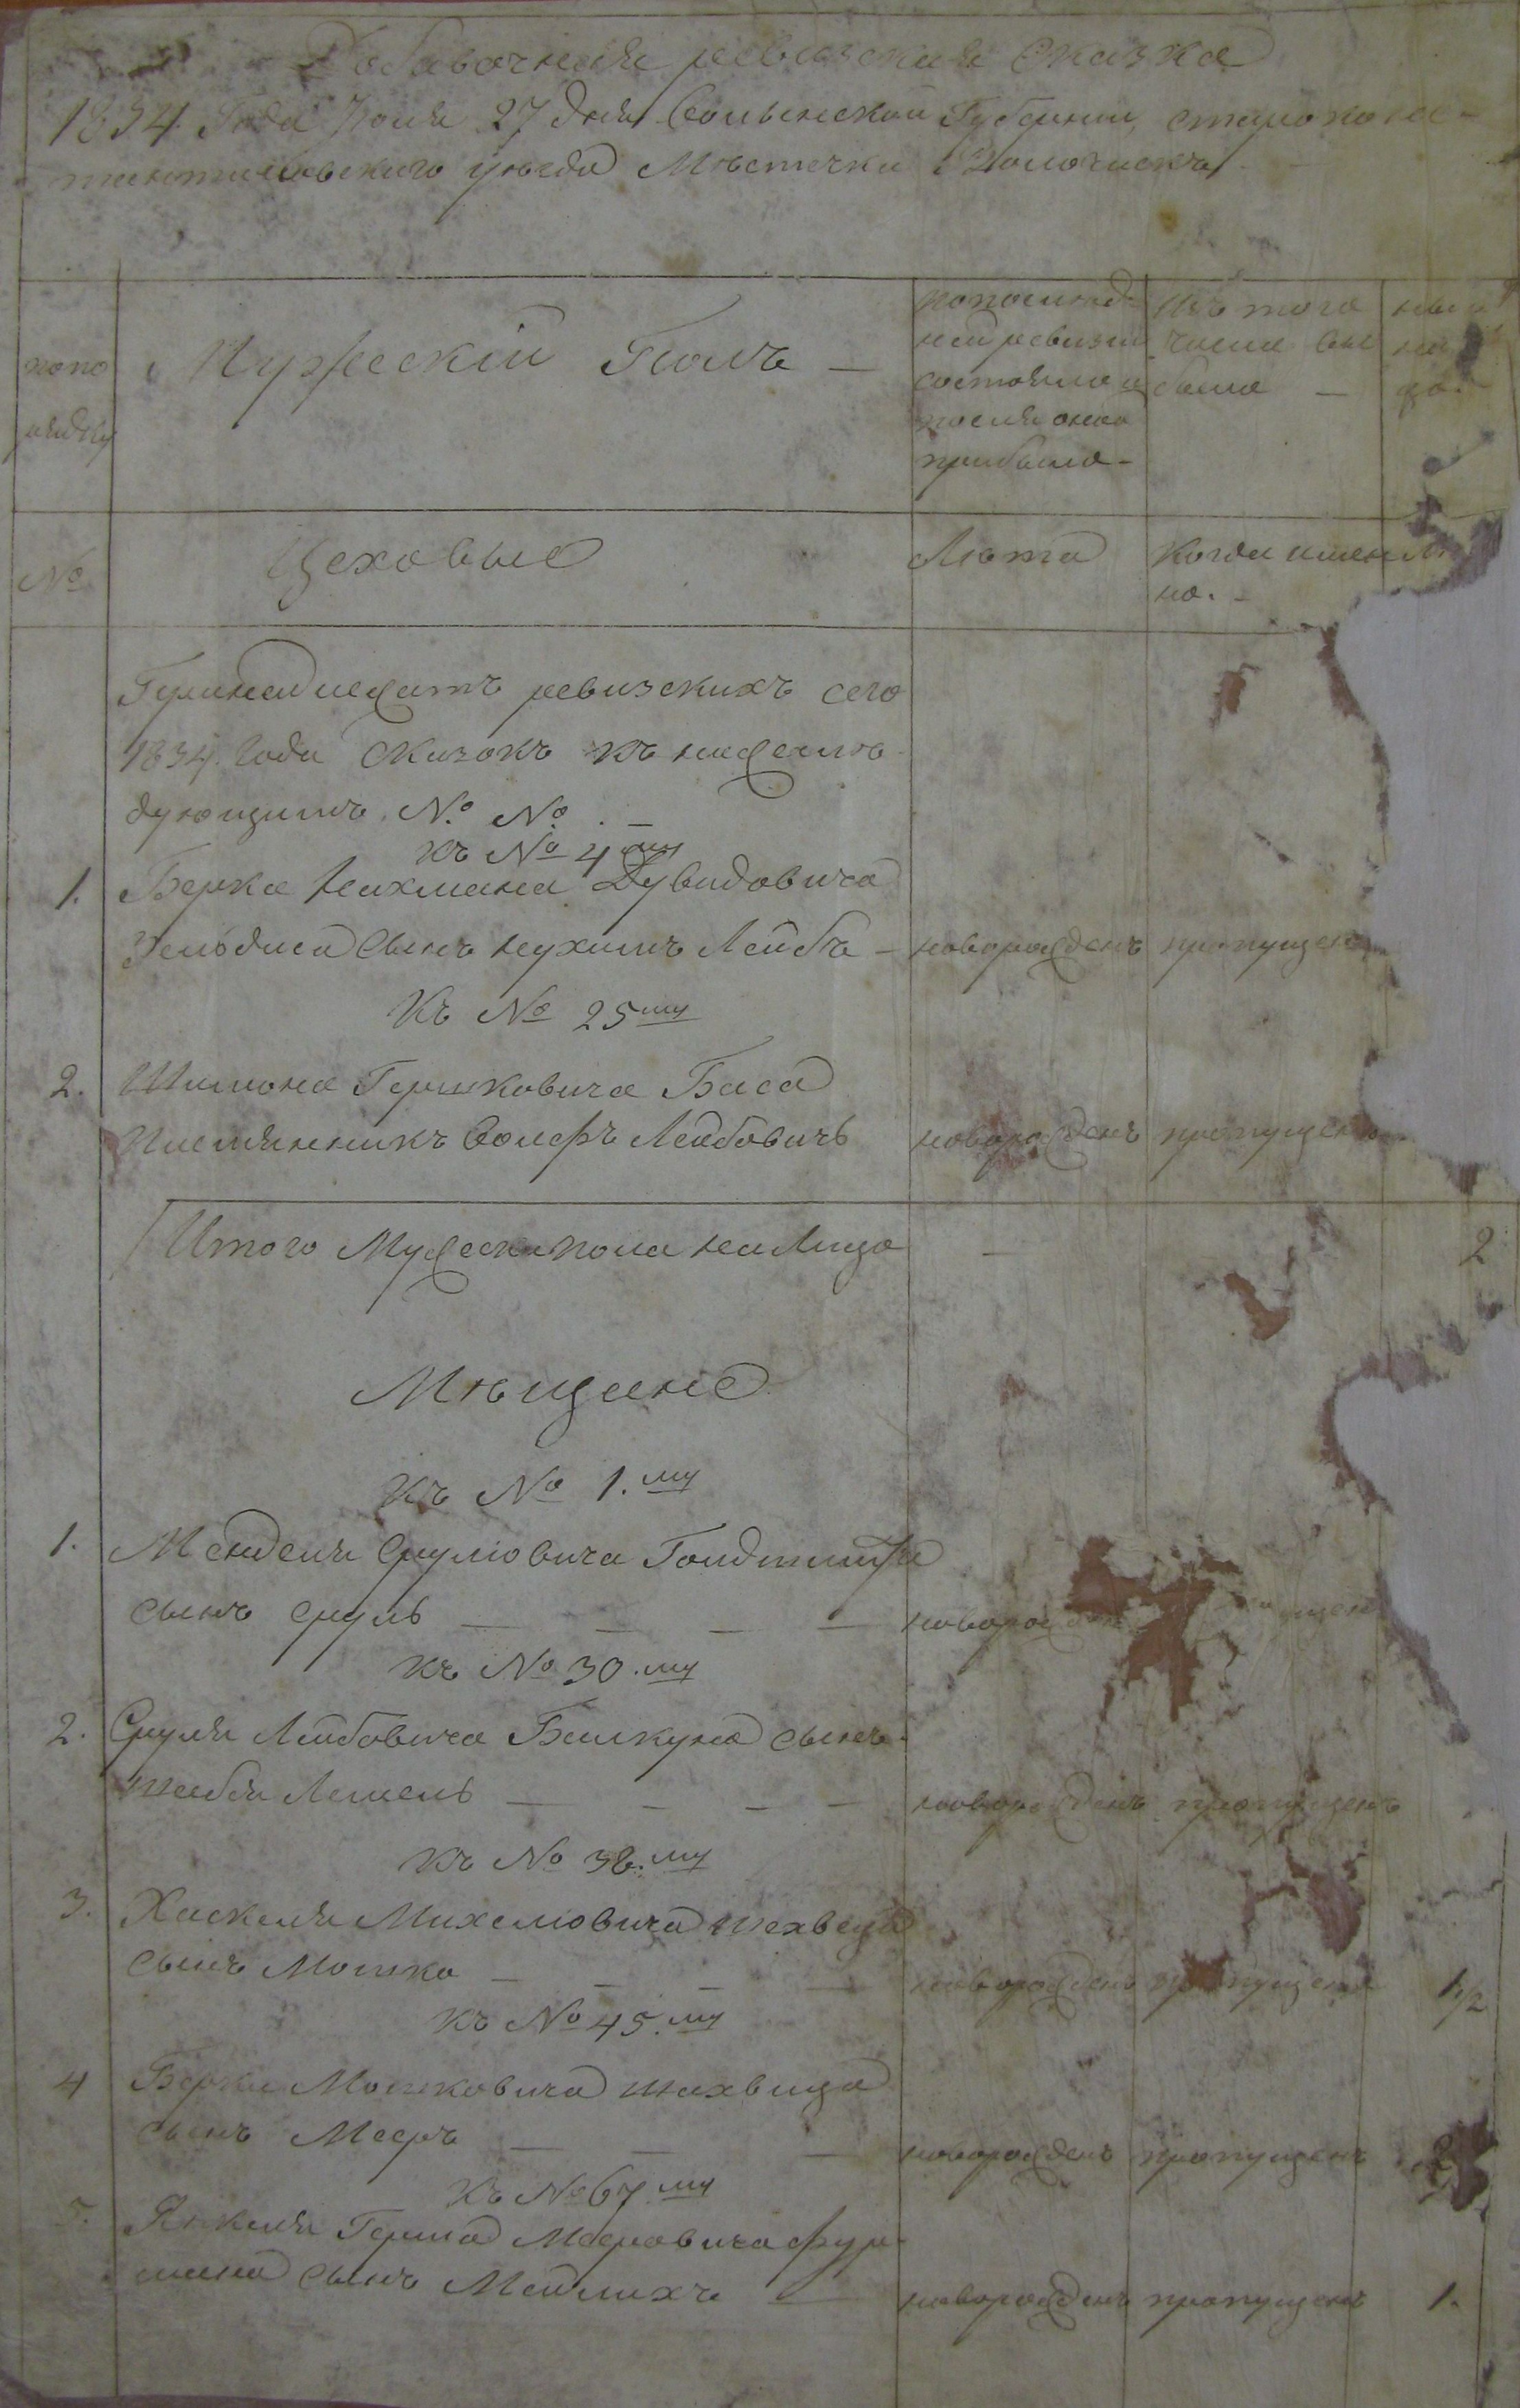 Добавочная ревизская Сказка
1834 Года Iюня 27 дня Волынской Губернии, старокон-
стантиновскаго уѣзда Мѣстечка Волочискъ
попо
рядку
Мужескiй Полъ —
попослѣд-
ней ревизiи
состояло и
послѣ оной
прибыло-
Изъ того
числа вы
было —
ны
на
№
Цеховые
Лѣта
Когда имен
но. -
ревизскихъ сего
1834. Года Сказокъ къ нижеслѣ-
дующимъ № №. —
Къ № 4му
1. Берка Нахмана Дувидовича
сынъ Нухимъ Лейба — новорожденъ пропущенъ
Къ № 25му
2. Шимона Гершковича Баса
Племянникъ Волефъ Лейбовичъ новорожденъ пропущенъ
Итого Мужеска пола на Лицо — 2
Мѣщане
Къ № 1.му
1. Менделя Срулiовича
сынъ Сруль — — — — новорожден
Къ № 30.му
2. Сруля Лейбовича сынъ
— — — — новорожденъ пропущенъ
Къ № 38.му
3. Хаскеля Михелiовича
сынъ Мошко — — — — новорожденъ пропущенъ 1/2
Къ № 45.му
4 Берка Мошковича
сынъ Мееръ — — — новорожденъ пропущенъ
Къ № 67му
5. Янкеля Герша Мееровича Фур-
мана сынъ Мейлихъ — новорожденъ пропущенъ 1.